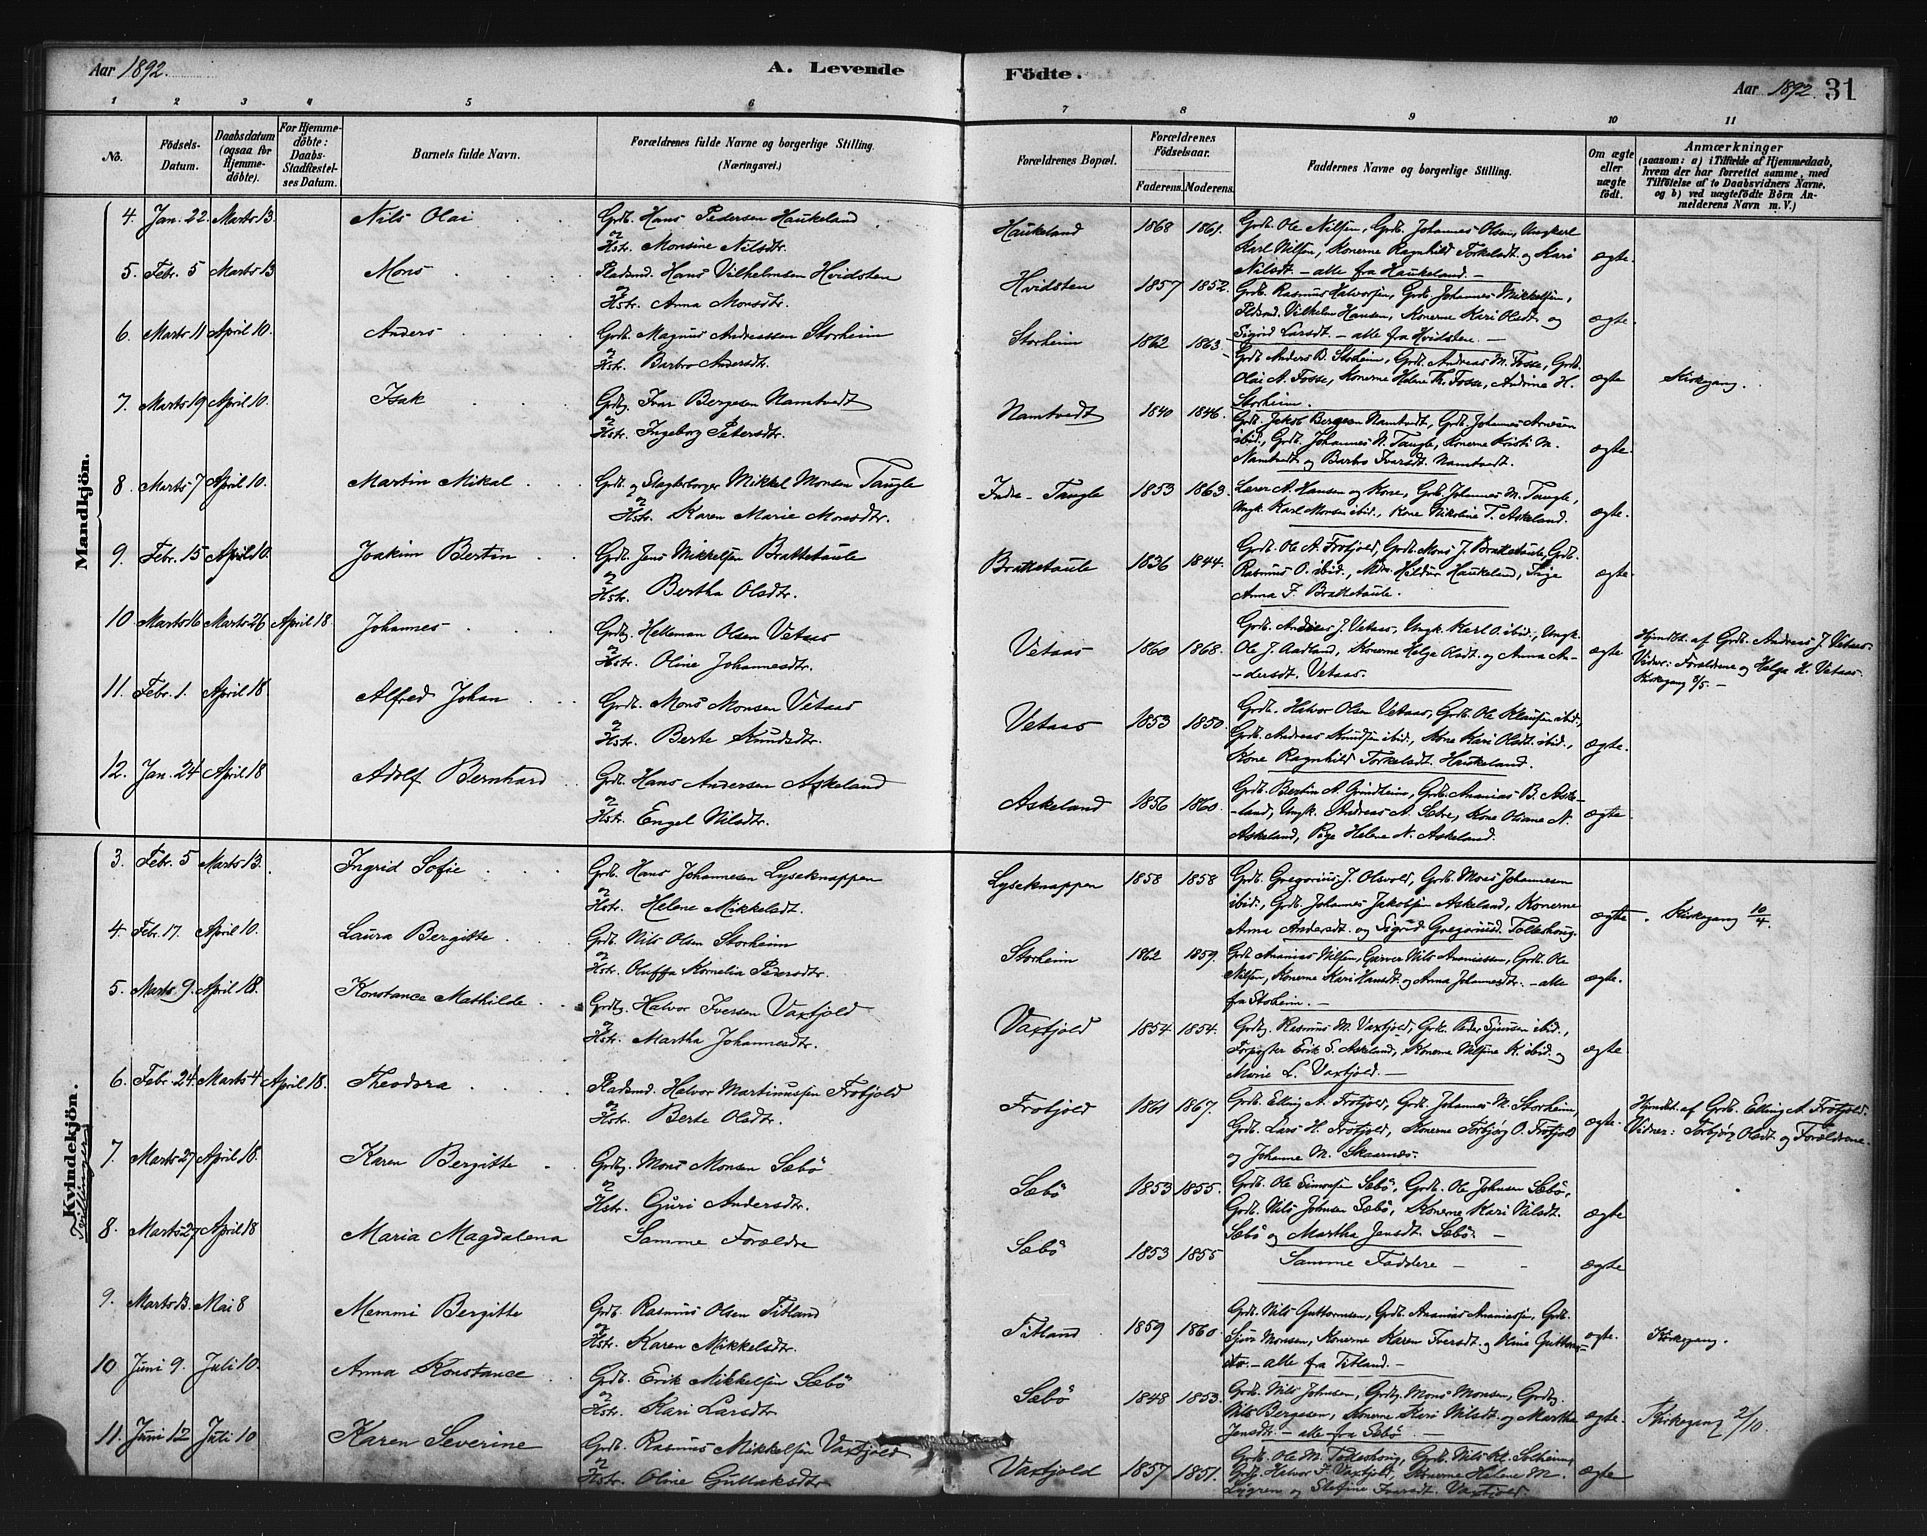 Aar 1892.
A. Levende Födte.
Aar 1892. 31
1 2 3 4 5 6 7 8 9 10 11
No.
Födsels-Datum.
Daabsdatum (ogsaa for Hjemme-döbte).
For Hjemme-döbte: Daabs-Stadfæstel-ses Datum.
Barnets fulde Navn.
Forældrenes fulde Navne og borgerlige Stilling. (Næringsvei.)
Forældrenes Bopæl.
Forældrenes Födselsaar.
Faderens. Moderens.
Faddernes Navne og borgerlige Stilling.
Om ægte eller uægte födt.
Anmærkninger
(saasom: a) i Tilfælde af Hjemmedaab,
hvem der har forrettet samme, med
Tilföielse af to Daabsvidners Navne,
og b) ved uægtefödte Börn An-
melderens Navn m. V.)
Mandkjön.
4. Jan. 22. Marts 13. Nils Olai Grdb. Hans Pedersen Haukeland
Hstr. Monsine Nilsdtr.
Haukeland 1868 1861.
Grdb. Ole Nilsen, Grdb. Johannes Olsen, Ungkarl
Karl Nilsen, Konerne Ragnhild Torkelsdt. og Kari
Nilsdt. – alle fra Haukeland. –
ægte.
5. Febr. 5 Marts 13 Mons Pladsmd. Hans Vilhelmsen Hvidsten
Hstr. Anna Monsdtr.
Hvidsten 1857 1852.
Grdb. Rasmus Halvorsen, Grdb. Johannes Mikkelsen,
Pldsmd. Vilhelm Hansen, Konerne Kari Olsdt. og
Sigrid Larsdt. – alle fra Hvidsten. –
ægte.
6. Marts 11 April 10. Anders Grdb. Magnus Andreassen Storheim
Hstr. Barbro Andersdtr.
Storheim 1862 1863.
Grdb. Anders B. Storheim, Grdb. Andreas M. Fosse, Grdb.
Olai A. Fosse, Konerne Helene Th. Fosse, Andrina H.
Storheim.
ægte Kirkegang.
7. Marts 19 April 10. Isak Grdbg. Ivar Bergesen Namtvedt
Hstr. Ingeborg Petersdtr.
Namtvedt 1840 1846.
Grdb. Jakob Bergesen Namtvedt, Grdb. Johannes Arnesen
ibid., Grdb. Johannes N. Taugle, Konerne Kristi M.
Namtvedt og Barbro Ivarsdt. Namtvedt.
ægte.
8. Marts 7 April 10. Martin Mikal Grdb. og Mikkel Monsen Taugle
Hstr. Karen Marie Monsdtr.
Indre-Taugle 1853 1863.
Lærer A. Hansen og Kone, Grdb. Johannes M. Taugle,
Ungk. Karl Monsen ibid., Kone Nikoline T. Askeland.
ægte.
9. Febr. 15 April 10. Joakim Bertin Grdb. Jens Mikkelsen Brattetaule
Hstr. Bertha Olsdtr.
Brattetaule 1836 1844.
Grdb. Ole A. Frotjold, Grdb. Mons J. Brattetaule, Grdb.
Rasmus O. ibid., Hildur Haukeland, Pige
Anna F. Brattetaule.
ægte.
10 Marts 16 Marts 26 April 18 Johannes Grdbg. Helleman Olsen Vetaas
Hstr. Oline Johannesdtr.
Vetaas 1860 1868.
Grdb. Andreas J. Vetaas, Ungk. Karl O. ibid., Ungk.
Ole J. Aadland, Konerne Helga Olsdt. og Anna An-
dersdt. Vetaas.
ægte Hjmdbt. af Grdb. Andreas J. Vetaas.
Vidner: Forældrene og Helga H. Vetaas.
Kirkegang 8/5. –
11. Febr. 1. April 18. Alfred Johan Grdb. Mons Monsen Vetaas
Hstr. Berte Knudsdtr.
Vetaas 1853 1850.
Grdb. Halvor Olsen Vetaas, Grdb. Ole Klausen ibid.,
Grdb. Andreas Knudsen ibid., Kone Kari Olsdt. ibid.,
Kone Ragnhild Torkelsdt. Haukeland.
ægte.
12. Jan. 24 April 18 Adolf Bernhard Grdb. Hans Andersen Askeland
Hstr. Engel Nilsdtr.
Askeland 1856 1860.
Grdb. Bertin A. Grindheim, Grdb. Ananias B. Aske-
land, Ungk. Andreas A. Sætre, Kone Oliane N.
Askeland, Pige Helene N. Askeland.
ægte.
Kvindekjön.
3. Febr. 5 Marts 13. Ingrid Sofie Grdb. Hans Johannesen Lyseknappen
Hstr. Helene Mikkelsdt.
Lyseknappen 1858 1858
Grdb. Gregorius J. Olsvold, Grdb. Mons Johannesen
ibid., Grdb. Johannes Jakobsen Askeland, Konerne
Anna Andersdt. og Sigrid Gregoriusd. Tolleshoug.
ægte. Kirkegang 10/4.
4. Febr. 17. April 10. Laura Bergitte Grdb. Nils Olsen Storheim
Hstr. Oluffa Kornelia Pedersdtr.
Storheim 1862 1859.
Grdb. Ananias Nilsen, Nils Ananiassen, Grdb. Ole
Nilsen, Konerne Kari Hansdt. og Anna Johannesdtr. – alle
fra Storheim. –
ægte.
5. Marts 9. April 18. Konstance Mathilde Grdbg. Halvor Iversen Vaxtjold
Hstr. Martha Johannesdtr.
Vaxtjold 1854 1854.
Grdbg. Rasmus M. Vaxtjold, Grdb. Peder Sjursen ibid.,
Forpagter Erik S. Askeland, Konerne Nilsine K. ibid. og
Marie L. Vaxtjold. –
ægte.
6. Febr. 24. Marts 4 April 18. Theodora Pladsmd. Halvor Martinussen Frotjold
Hstr. Berte Olsdtr.
Frotjold 1861 1867.
Grdb. Elling A. Frotjold, Grdb. Johannes M. Storheim,
Grdb. Lars H. Frotjold, Konerne Torbjør O. Frotjold
og Johanne M. Skaarnæs.
ægte. Hjmdbt. af Grdb. Elling A. Frotjold.
Vidner: Torbjør Olsdt. og Forældrene.
Tvillinger
7. Marts 27 April 18. Karen Bergitte Grdbg. Mons Monsen Sæbö
Hstr. Guri Andersdtr.
Sæbö 1853 1855.
Grdb. Ole Simonsen Sæbö, Grdb. Ole Johnsen Sæbö,
Grdb. Nils Johnsen Sæbö, Konerne Kari Nilsdt.
Sæbö og Martha Jensdt. Sæbö. –
ægte
8. Marts 27 April 18 Maria Magdalena Samme Forældre
Sæbö 1853 1855 Samme Faddere – ægte
9. Marts 13. Mai 8 Memmi Bergitte Grdb. Rasmus Olsen Titland
Hstr. Karen Mikkelsdtr.
Titland 1859 1860.
Grdb. Nils Guttormsen, Grdb. Ananias Ananiassen, Grdb.
Sjur Monsen, Konerne Karen Iversdt. og Oline Guttorms-
dtr. – alle fra Titland. –
ægte. Kirkegang.
10. Juni 9. Juli 10. Anna Konstance Grdb. Erik Mikkelsen Sæbö
Hstr. Kari Larsdtr.
Sæbö 1848 1853.
Grdb. Nils Johnsen, Grdbg. Mons Monsen, Grdbg.
Nils Bergesen, Konerne Kari Nilsdt. og Martha
Jensdt. – alle fra Sæbö. –
ægte. Kirkegang 2/10.
11. Juni 12 Juli 10 Karen Severine Grdb. Rasmus Mikkelsen Vaxtjold
Hstr. Oline Gullaksdtr.
Vaxtjold 1857 1851.
Grdb. Ole M. Tolleshoug, Grdb. Nils Kl. Solheim,
Grdb. Halvor I. Vaxtjold, Konerne Helene M.
Lygren og Stefine Ivarsdt. Vaxtjold.
ægte